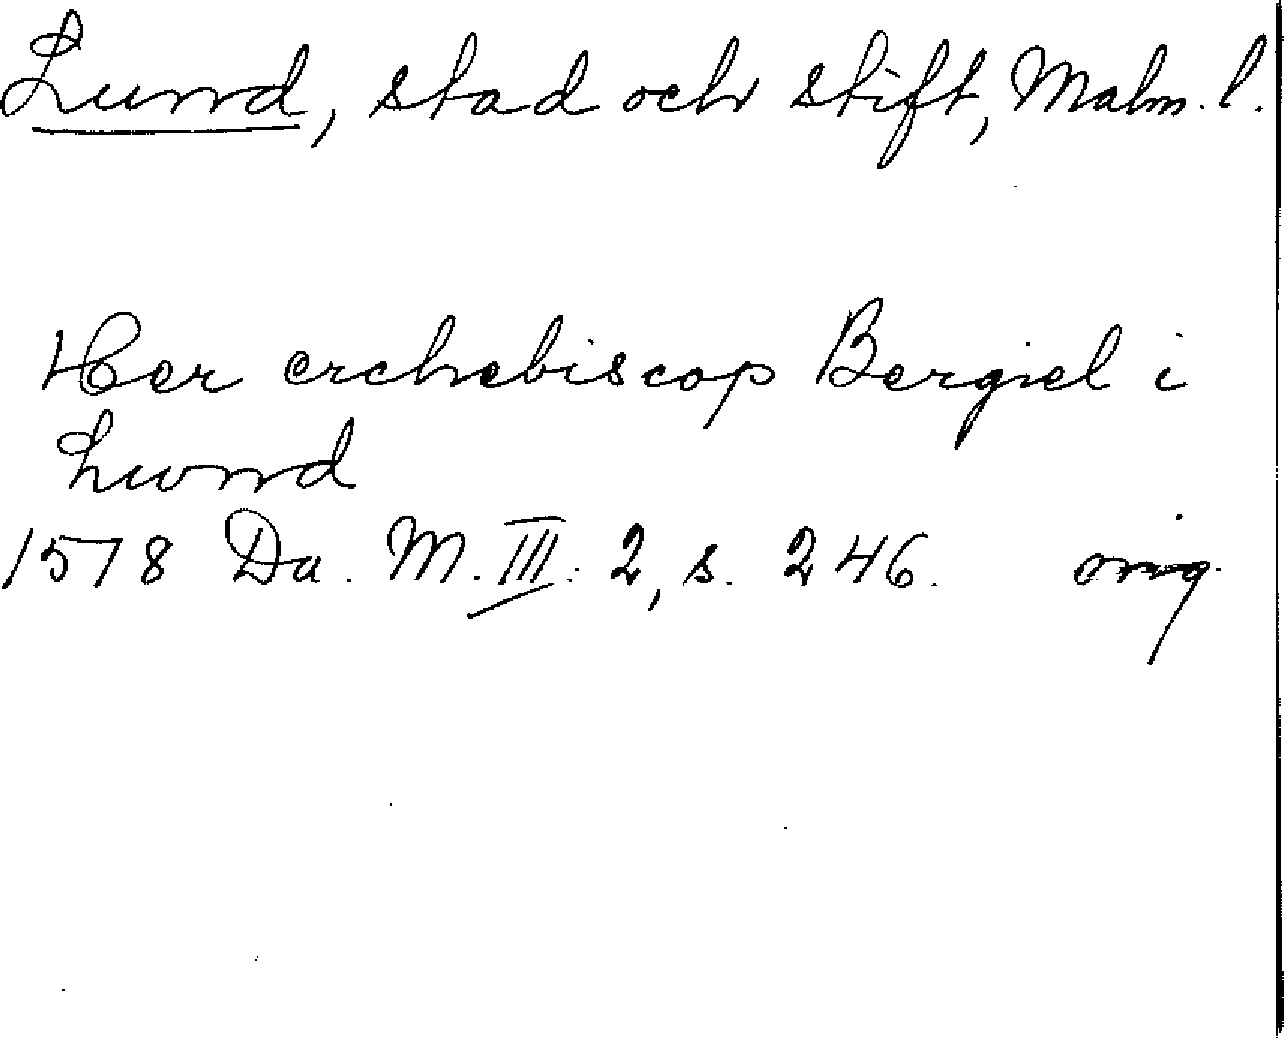 Lund, stad och stift, Malm. l.
Her erchebiscop Bergiel i
Lund
1578 Da. M. III: 2, s. 246. orig.